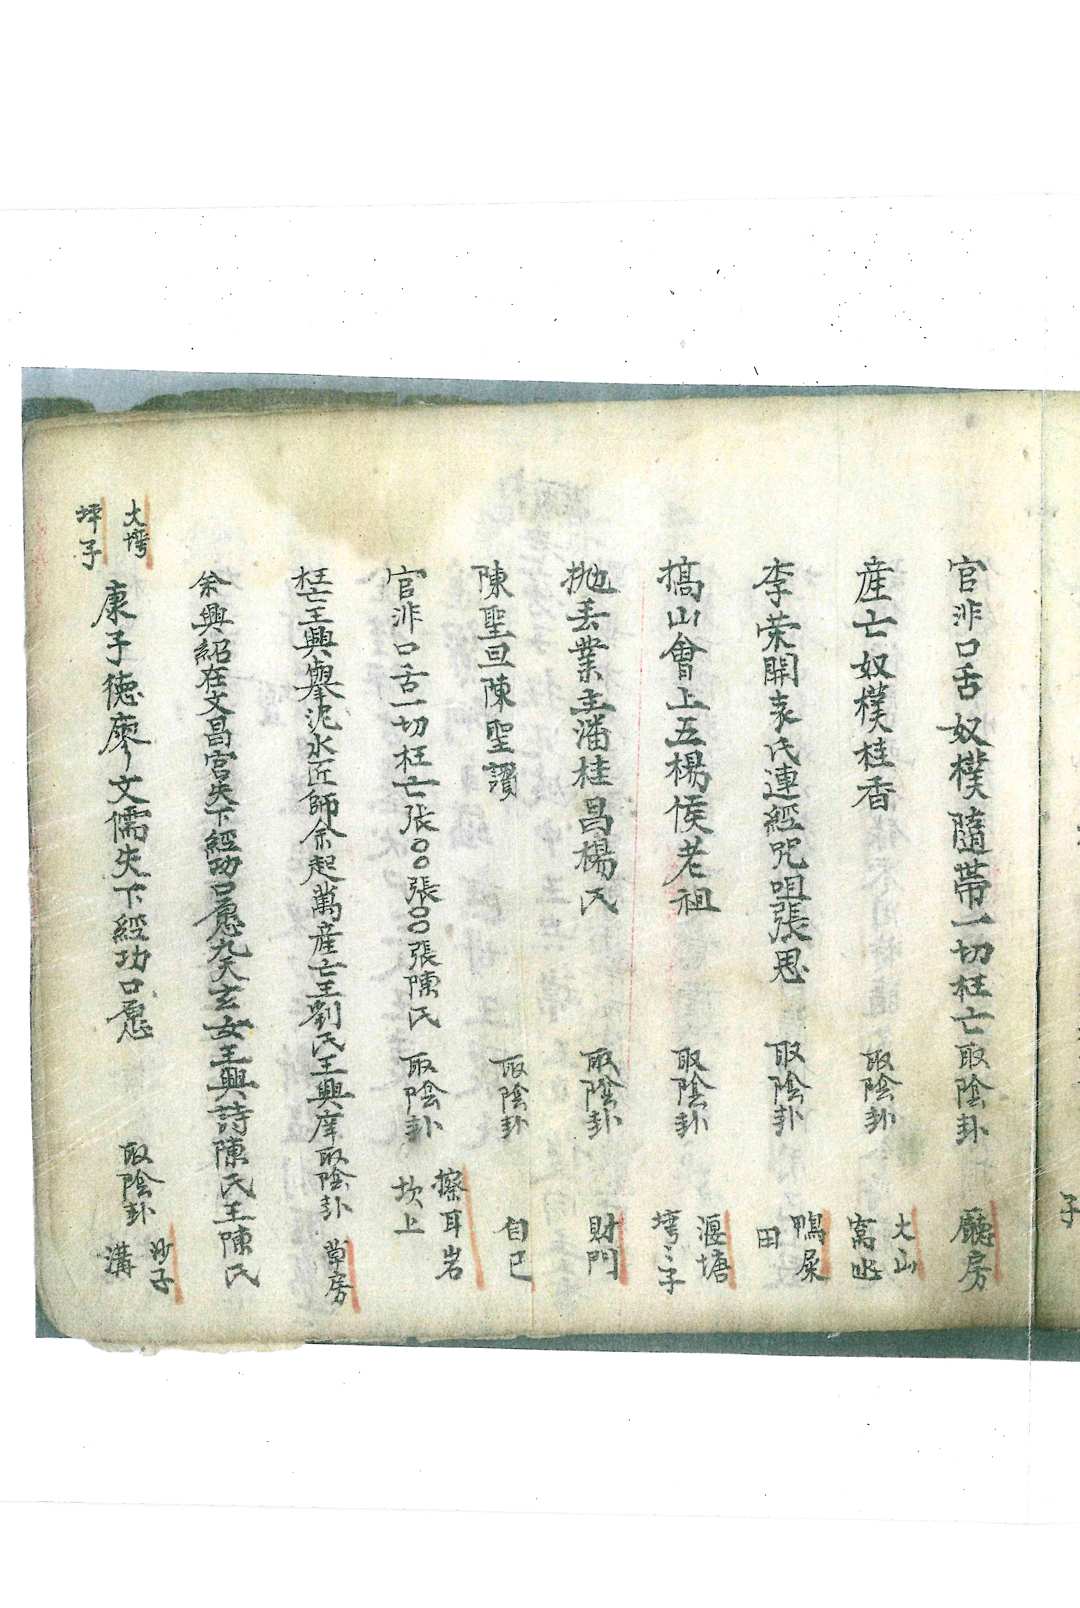 官非口舌奴樸隨帶一切枉亡取陰卦
廳房
產亡奴樸桂香取陰卦
大山
窩凼
李荣開袁氏連經咒咀張恩取陰卦
鴨屎
田
搞山會上五楊侯老祖取陰卦
堰塘
塆〻子
抛丢業主潘桂昌楊氏取陰卦
財門
陳聖旦陳聖讚取陰卦
自己
官非口舌一切枉亡張〇〇張〇〇張陳氏取陰卦
擦耳岩
坎上
枉亡王興舉泥水匠師余起萬產亡王劉氏王興庠取陰卦
草房
余興紹在文昌宮失下經功口愿九天玄女王興詩陳氏王陳氏
大塆
坪子
康子德廖文儒失下經功口愿取陰卦
沙子
溝
子